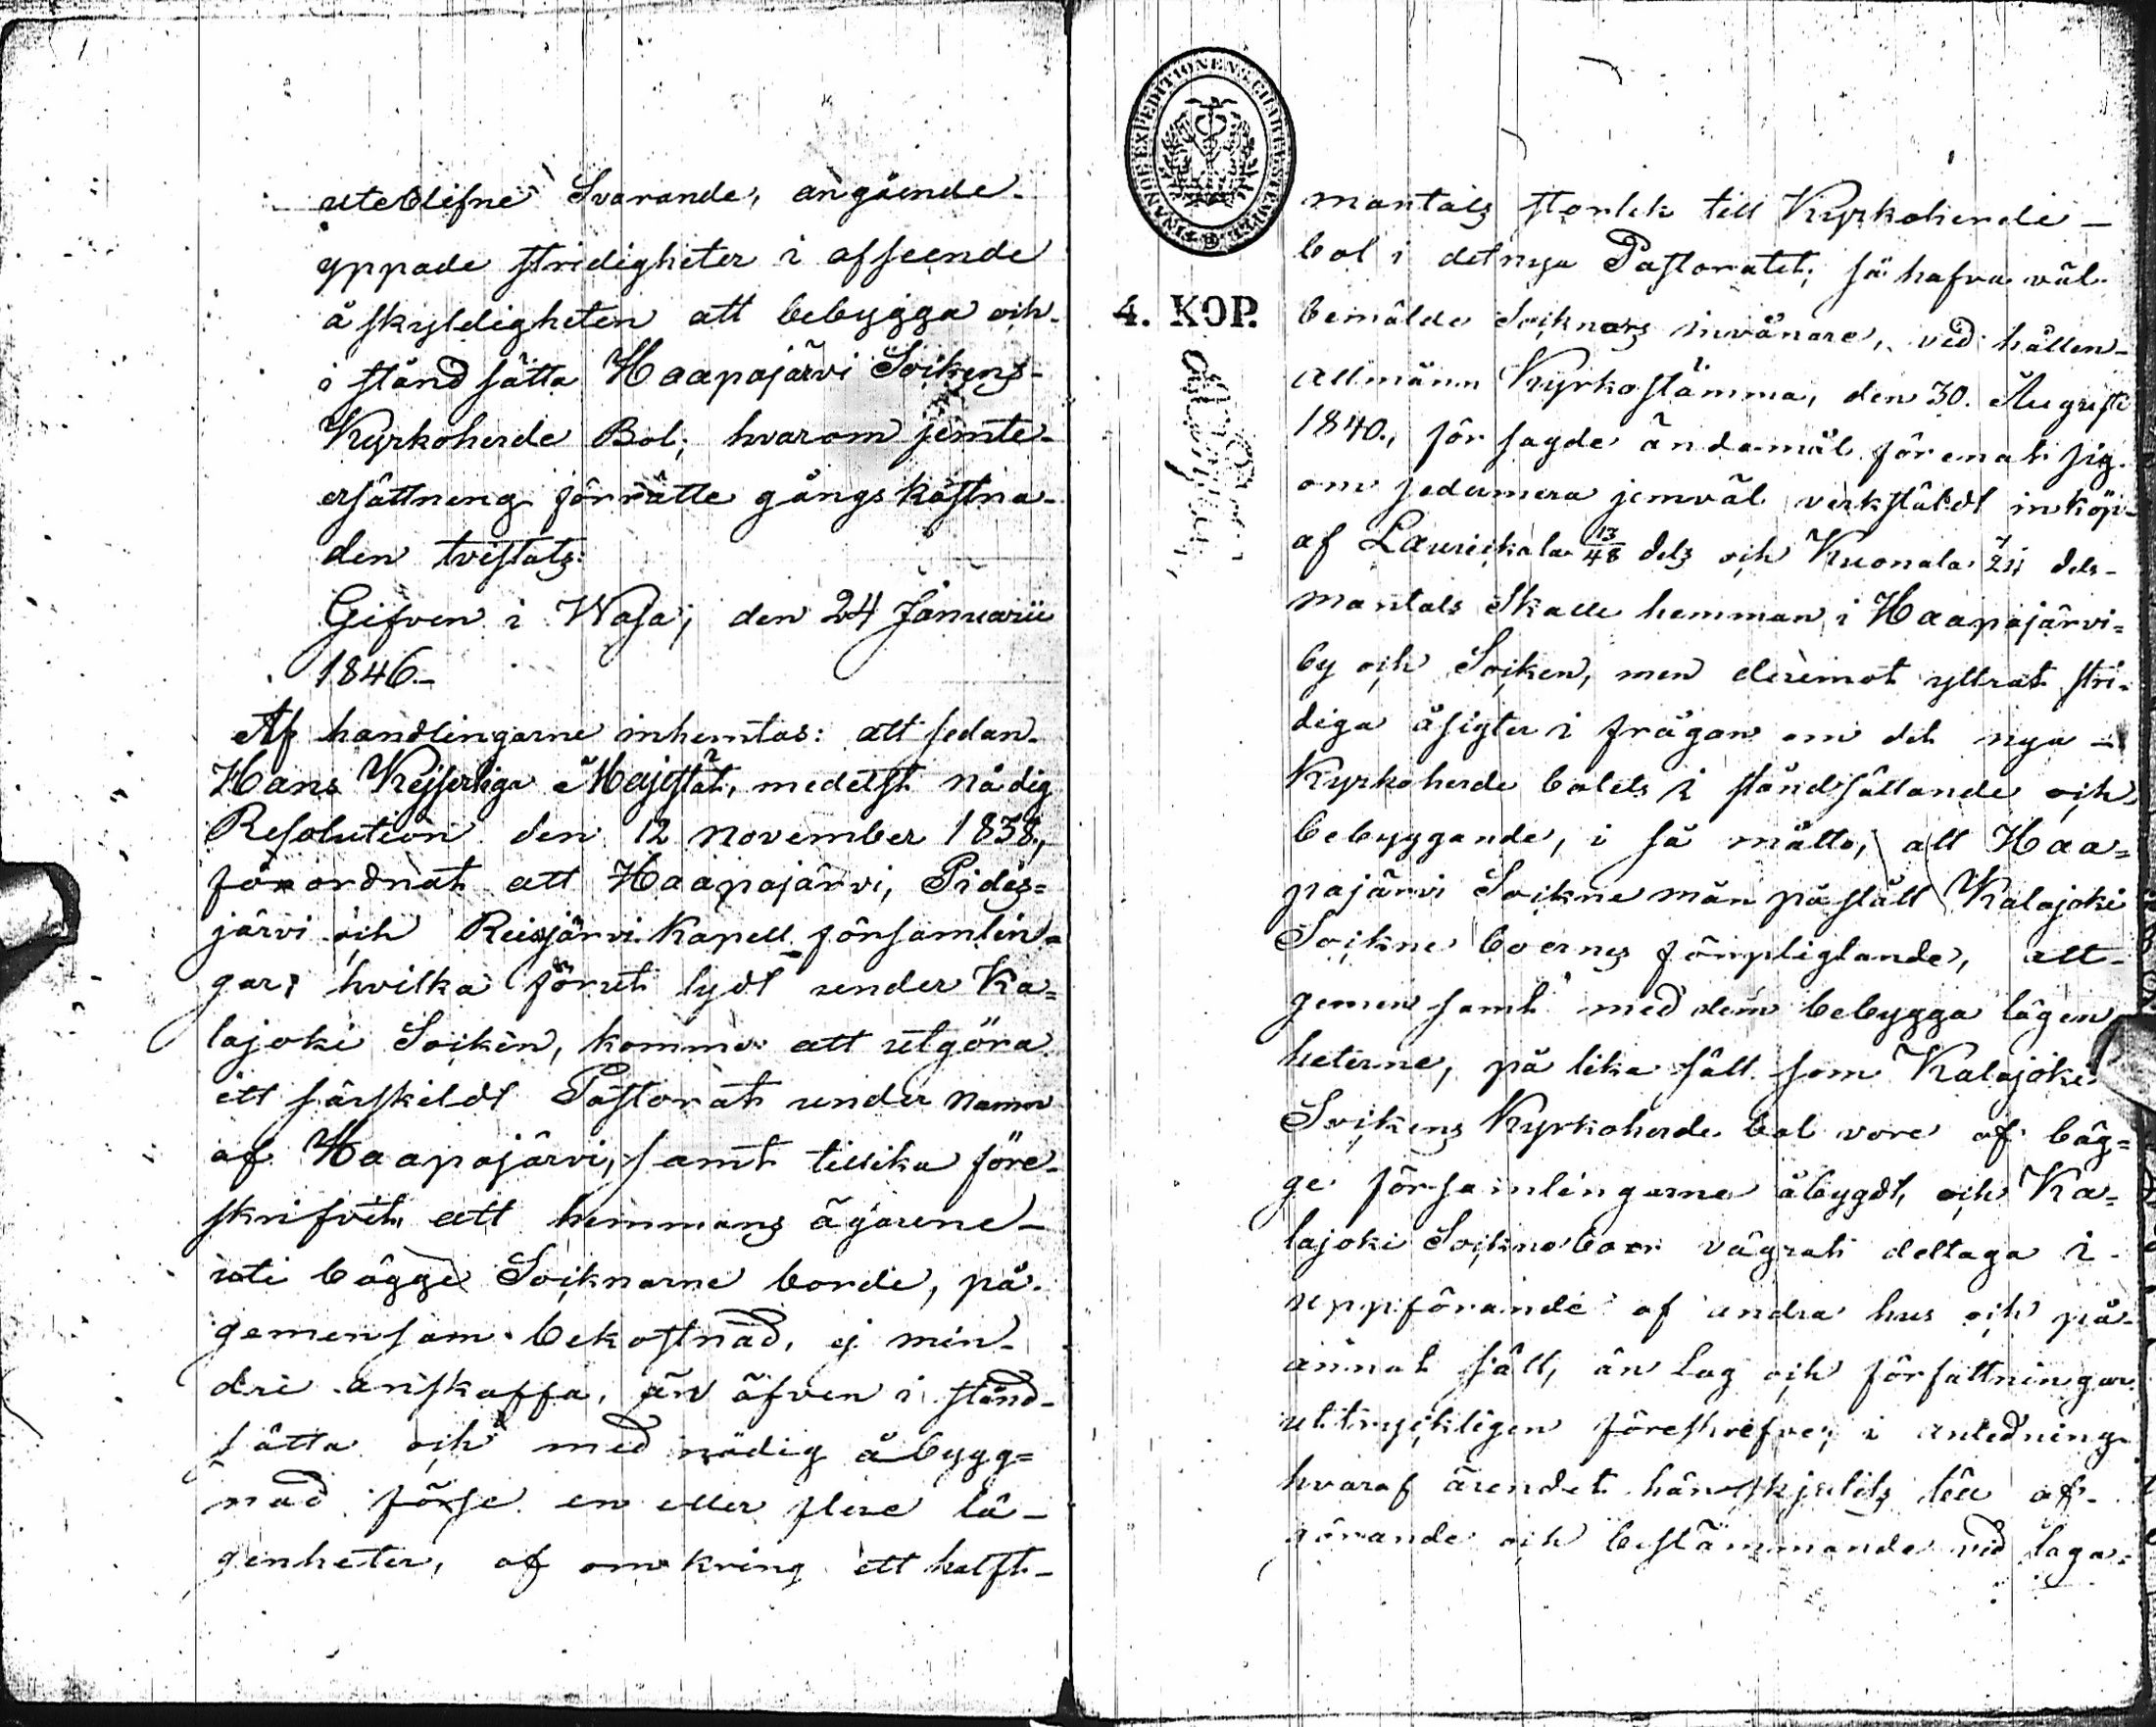 uteblifne Svarande, angående
yppade stridigheter i afseende
å skyldigheten att bebygga och
i stånd sätta Haapajärvi Sockens
Kyrkoherde Bol; hvarom jemte
ersättning för rätte gångs kostna-
den tvistats.
Gifven i Wasa, den 24 Januarii
1846.-
Af handlingarne inhemtas: att sedan
Hans Kejserliga Majestät, medelst nådig
Resolution den 12 November 1838,
förordnat att Haapajärvi, Pides=
järvi och Reisjärvi Kapell församlin=
gar, hvilka förut lydt under Ka=
lajoki Socken, komme att utgöra
ett särskildt Pastorat under namn
af Haapajärvi, samt tillika före-
skrifvit, att hemmans ägarene-
uti bägge Socknarne borde, på
gemensam bekostnad, ej min-
dre anskaffa, än äfven i stånd-
sätta och med nödig åbygg=
nad förse en eller flere lä-
genheter, af omkring ett halft-
FINANCE EXPEDITIONENS CHARTÆ STEMPEL
4. KOP.
mantals storlek till Kyrkoherde-
bol i det nya Pastoratet; så hafva väl-
bemälde Socknars invånare, vid hållen
allmänn Kyrkostämma, den 30. Augusti
1840., för sagde ändamål förenat sig
om sedermera jemväl verkstäldt inköp
af Laurickala 13/48 dels och Kuonala dels-
mantals Skatte hemman i Haapajärvi=
by och Socken, men deremot yttrat stri-
diga åsigter i frågan om det nya -
Kyrkoherde bolets i ståndsättande och
bebyggande, i så måtto, att Haa=
pajärvi Sockne män påstått Kalajoki
Sockne boernes förpligtande, att-
gemensamt med dem bebygga lägen
heterne, på lika sätt som Kalajoki
Sockens Kyrkoherde bol vore af bäg=
ge församlingarne åbygdt, och Ka=
lajoki Sockneboer vägrat deltaga i-
uppförande af andra hus och på
annat sätt, än Lag och författningar
uttryckligen föreskrefve; i anledning
hvaraf ärendet hänskjutits till af-
görande och bestämmande vid laga